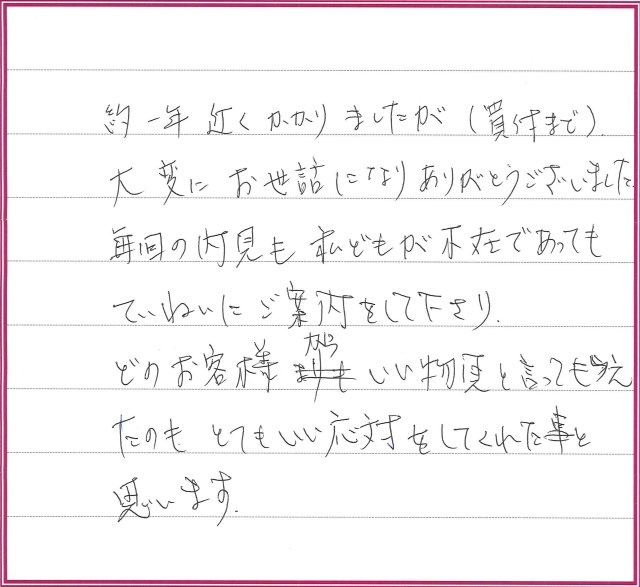 約一年近くかかりましたが(買付まで).
大変にお世話になりありがとうございました.
毎回の内見も私どもが不在であっても
ていねいにご案内をして下さり.
どのお客様からもいい物件と言ってもらえ
たのも とてもいい応対をしてくれた事と
思います.